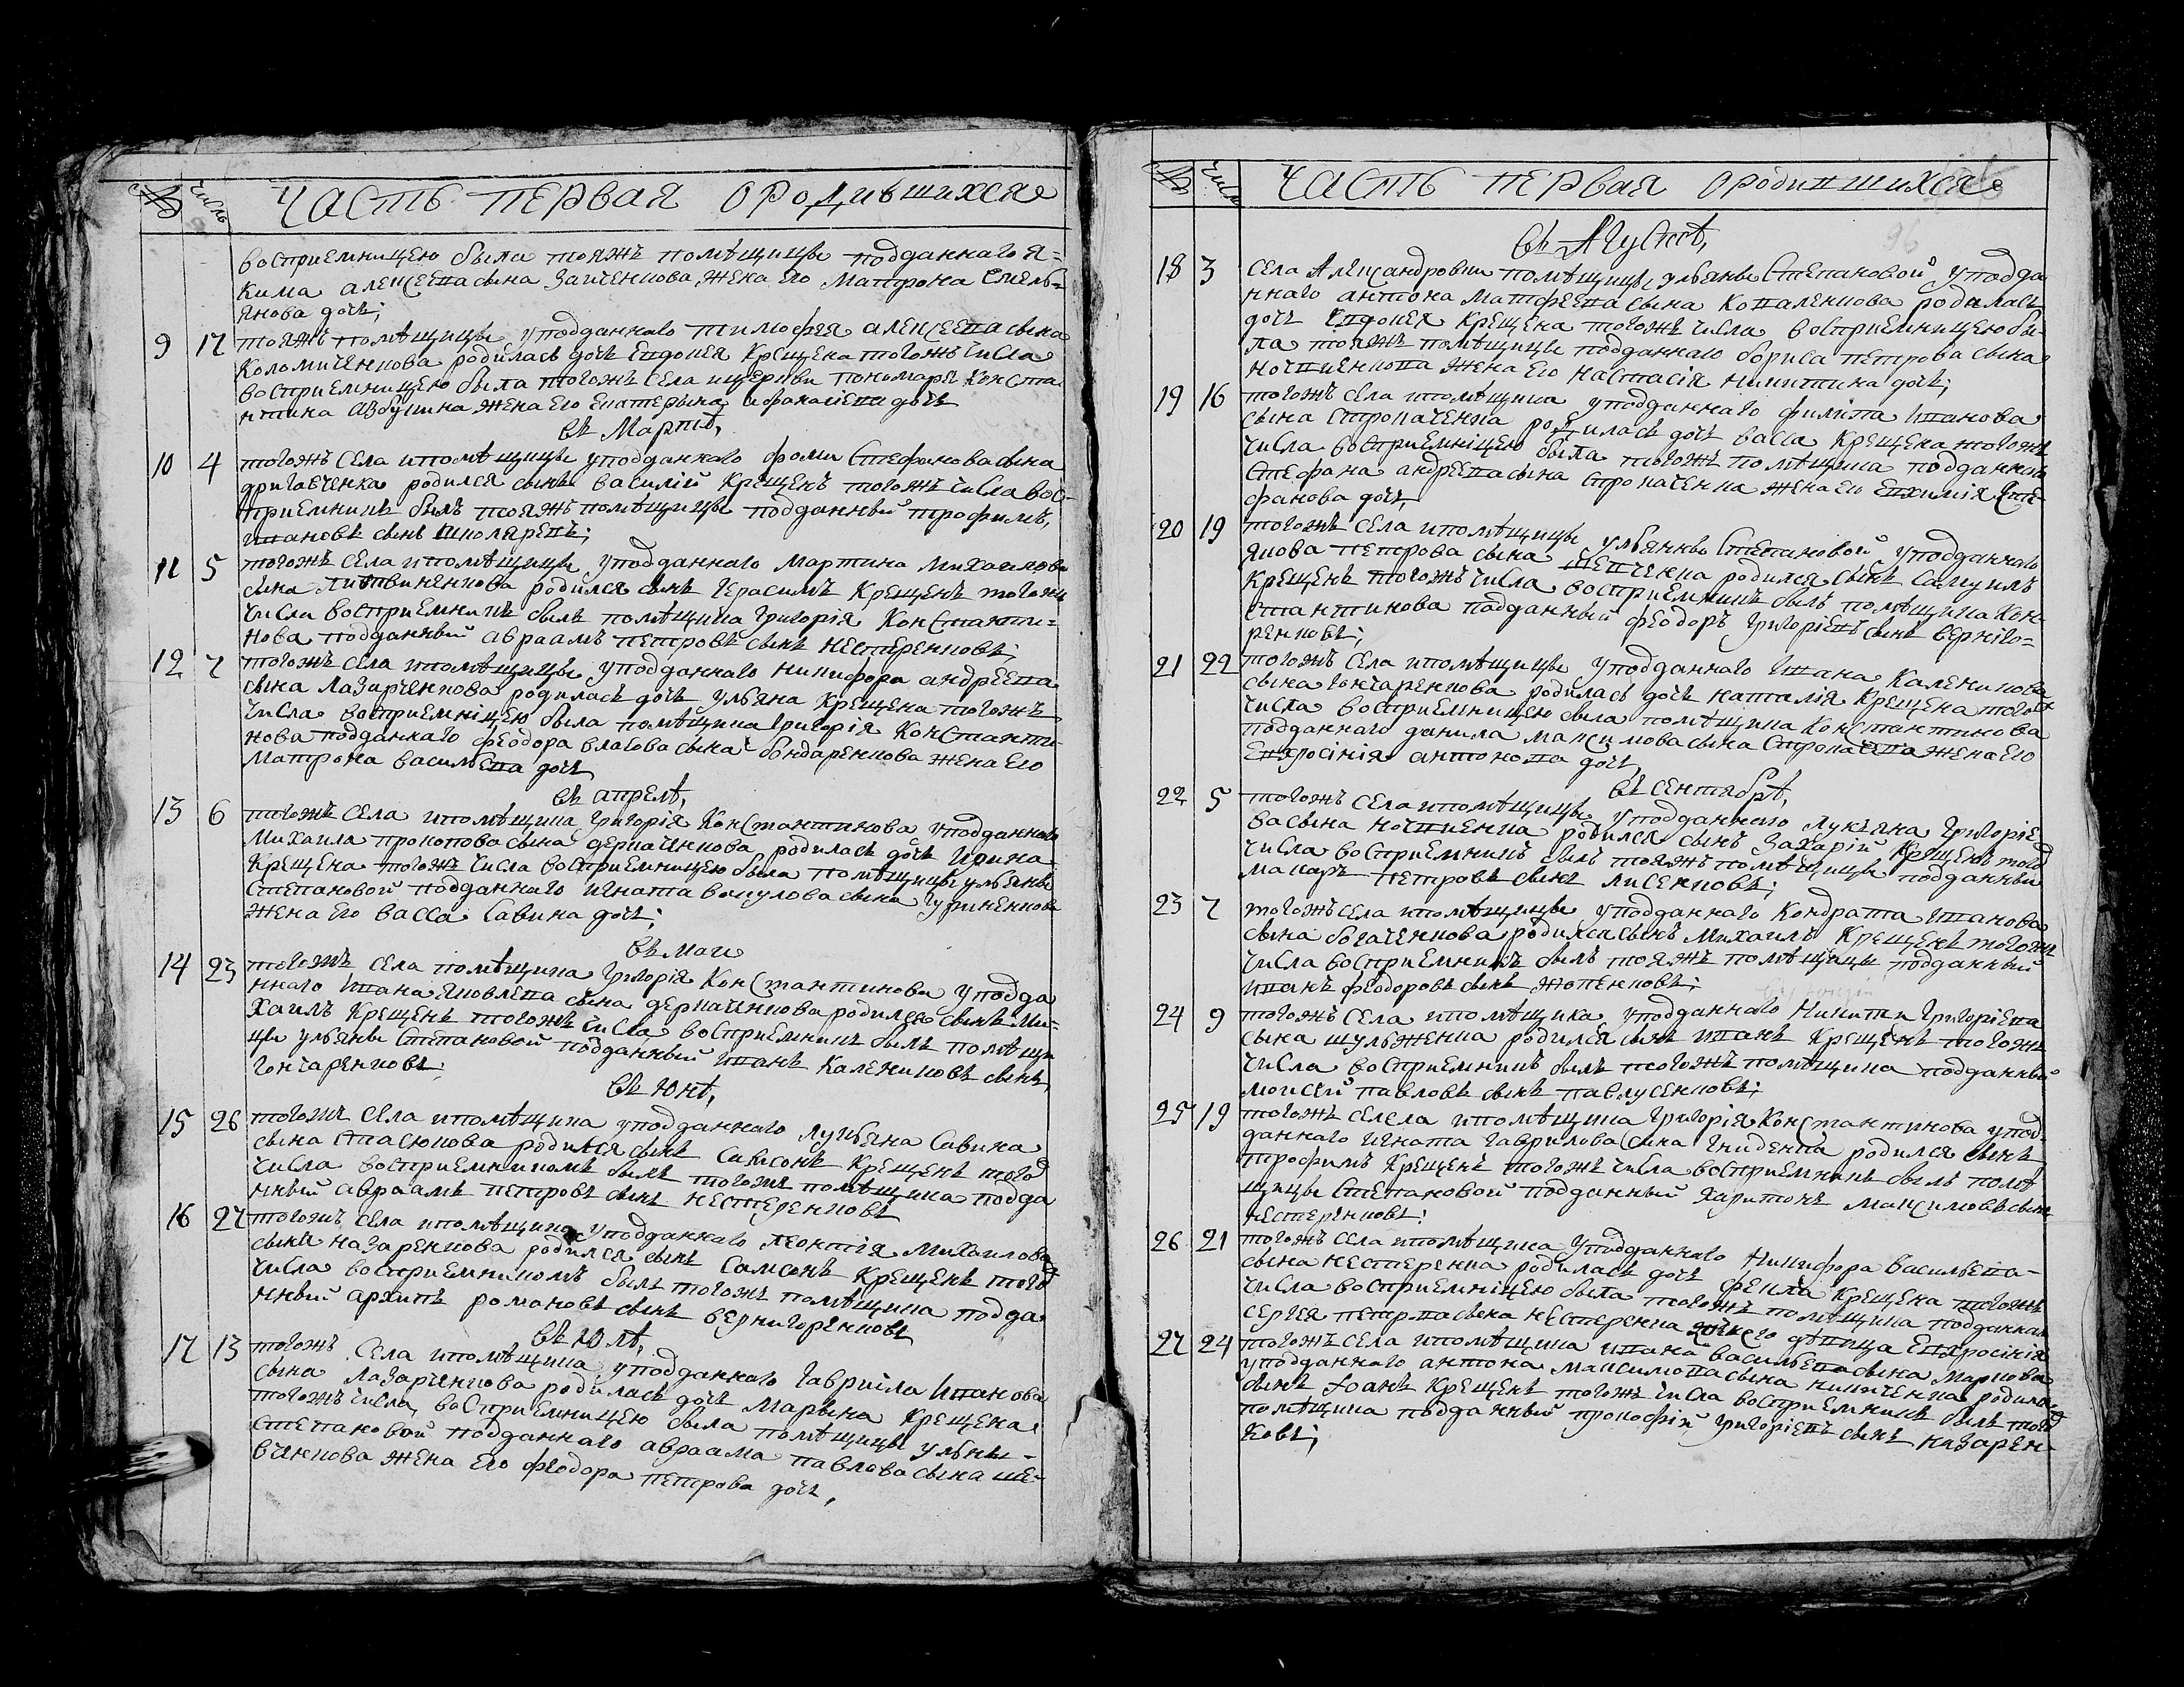 № Число Часть первая о родившихся
восприемницею была тояжъ помѣщицы подданнаго Я-
кима алексеева сына Заиченкова жена Его Матрона Емель-
янова дочь;
9 17 тояжъ помѣщицы у подданнаго тимофея алексеева сына
Коломиченкова родилась дочь Евдокея Крещена тогожъ числа
восприемницею была тогожъ села и церкви пономаря Конста-
нтина жена Его Екатерына дочь
въ Мартѣ,
10 4 тогожъ села и помѣщицы у подданнаго фоми Стефанова сына
родился сынъ василій Крещенъ тогожъ числа вос-
приемникъ былъ тояжъ помѣщицы подданный трофимъ,
ивановъ сынъ Школяревъ;
11 5 тогожъ села и помѣщицы у подданнаго Мартина Михаилова
сына Литвиненкова родился сынъ Герасимъ Крещенъ тогожъ
числа восприемникъ былъ помѣщика Григорія Константи-
нова подданный авраамъ петровъ сынъ нестеренковъ;
12 7 тогожъ села и помѣщицы у подданнаго никифора андреева
сына Лазарченкова родилась дочь ульяна Крещена тогожъ
числа восприемніцею была помѣщика Григорія Константи-
нова подданнаго феодора власова сына бондаренкова жена Его
Матрона васильева дочь
въ апрелѣ,
13 6 тогожъ села и помѣщика Григорія Константинова у подданнаго
Михаила прокопова сына деркаченкова родилась дочь Ирина
Крещена тогожъ числа восприемницею была помѣщицы ульяны
Степановой подданнаго игната сына гуриненкова
жена Его васса Савина дочь;
въ маи
14 23 тогожъ села помѣщика Григорія Константинова у подда
ннаго ивана яковлева сына деркаченкова родился сынъ Ми-
хаилъ Крещенъ тогожъ числа восприемникъ былъ помѣщи
цы ульяны Степановой подданный иванъ Калениковъ сынъ
Гончаренковъ;
въ Юнѣ,
15 26 тогожъ села и помѣщика у подданнаго лукьяна Савина
сына стасюкова родился сынъ Сампсонъ Крещенъ тогожъ
числа восприемникомъ былъ тогожъ помѣщика подда
нный авраамъ петровъ сынъ нестеренковъ
16 27 тогожъ села и помѣщика у подданнаго леонтія Михаилова
сына назаренкова родился сынъ Самсонъ Крещенъ тогожъ
числа восприемникомъ былъ тогожъ помѣщика подда
нный архипъ романовъ сынъ вернигоренковъ
въ Юлѣ,
17 13 тогожъ села и помѣщика у подданнаго гавриила иванова
сына Лазарченкова родилась дочь Марына Крещена
тогожъ числа восприемницею была помѣщицы ульяны
степановой подданнаго авраама павлова сына ше-
вченкова жена Его феодора петрова дочь,
№ Число Часть первая о родившихся
96
въ Августѣ,
18 3 села Александровки помѣщицы ульяны Степановой у подда
ннаго антона Матфеева сына Коваленкова родилась
дочь Евдокея Крещена тогожъ числа восприемницею бы-
ла тояжъ помѣщицы подданнаго бориса петрова сына
жена Его настасія никитина дочь;
19 16 тогожъ села и помѣщика у подданнаго филипа иванова
сына Стропаченка родилась дочь васса Крещена тогожъ
числа восприемніцею была тогожъ помѣщика подданнаго
Стефана андреева сына Стропаченка жена его Евхимія Сте-
фанова дочь,
20 19 тогожъ села и помѣщицы ульянны Степановой у подданнаго
якова петрова сына шевченка родился сынъ Самуилъ
Крещенъ тогожъ числа восприемникъ былъ помѣщика Кон-
стантинова падданный феодоръ Григоріевъ сынъ верніго-
ренковъ;
21 22 тогожъ села и помѣщицы у подданнаго ивана Каленикова
сына гончаренкова родилась дочь наталія Крещена тогожъ
числа восприемницею была помѣщика Константинова
подданнаго данила максимова сына жена Его
Евфросінія антонова дочь
въ сентябрѣ,
22 5 тогожъ села и помѣщицы у подданнаго лукъяна Григоріе
ва сына родился сынъ Захарій Крещенъ тогожъ
числа восприемникъ былъ тояжъ помѣщицы подданный
макаръ петровъ сынъ лисенковъ;
23 7 тогожъ села и помѣщицы у подданнаго Кондрата иванова
сына богаченкова родился сынъ Михаилъ Крещенъ тогожъ
числа восприемникъ былъ тояжъ помѣщицы подданный
иванъ феодоровъ сынъ
24 9 тогожъ села и помѣщика у подданнаго Никити Григоріева
сына шульженка родился сынъ иванъ Крещенъ тогожъ
числа восприемникъ былъ тогожъ помѣщика подданный
моисей павловъ сынъ павлусенковъ;
25 19 тогожъ селела и помѣщика Григорія Константинова у под-
даннаго игната гаврилова сына Гниденка родился сынъ
трофимъ Крещенъ тогожъ числа восприемникъ былъ помѣ
щицы Степановой подданный Харитонъ максимовъ сынъ
нестеренковъ;
26 21 тогожъ села и помѣщика у подданнаго Никифора васильева
сына нестеренка родилась дочь фекла Крещена тогожъ
числа восприемніцею была тогожъ помѣщика подданнаго
сергея петрова сына нестеренка его девица Евфросінія
27 24 тогожъ села и помѣщика ивана васильева сына Маркова
у подданнаго антона максимова сына никиченка родился
сынъ Іоанъ Крещенъ тогожъ числа восприемникъ былъ тогожъ
помѣщика подданный прокофій григоріевъ сынъ назарен
ковъ;